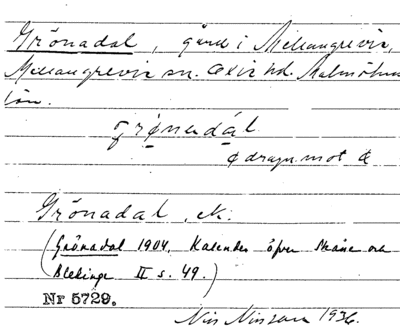 Grönadal, gård i Mellangrevie,
Mellangrevie sn. Oxie hd. Malmöhus
län.
grønadál
ø dragn. mot œ
Grönadal, ek.
(Grönadal 1904, Kalender öfver Skåne och
Blekinge II s. 49.)
Nr 5729.
Nils Nilsson 1936.